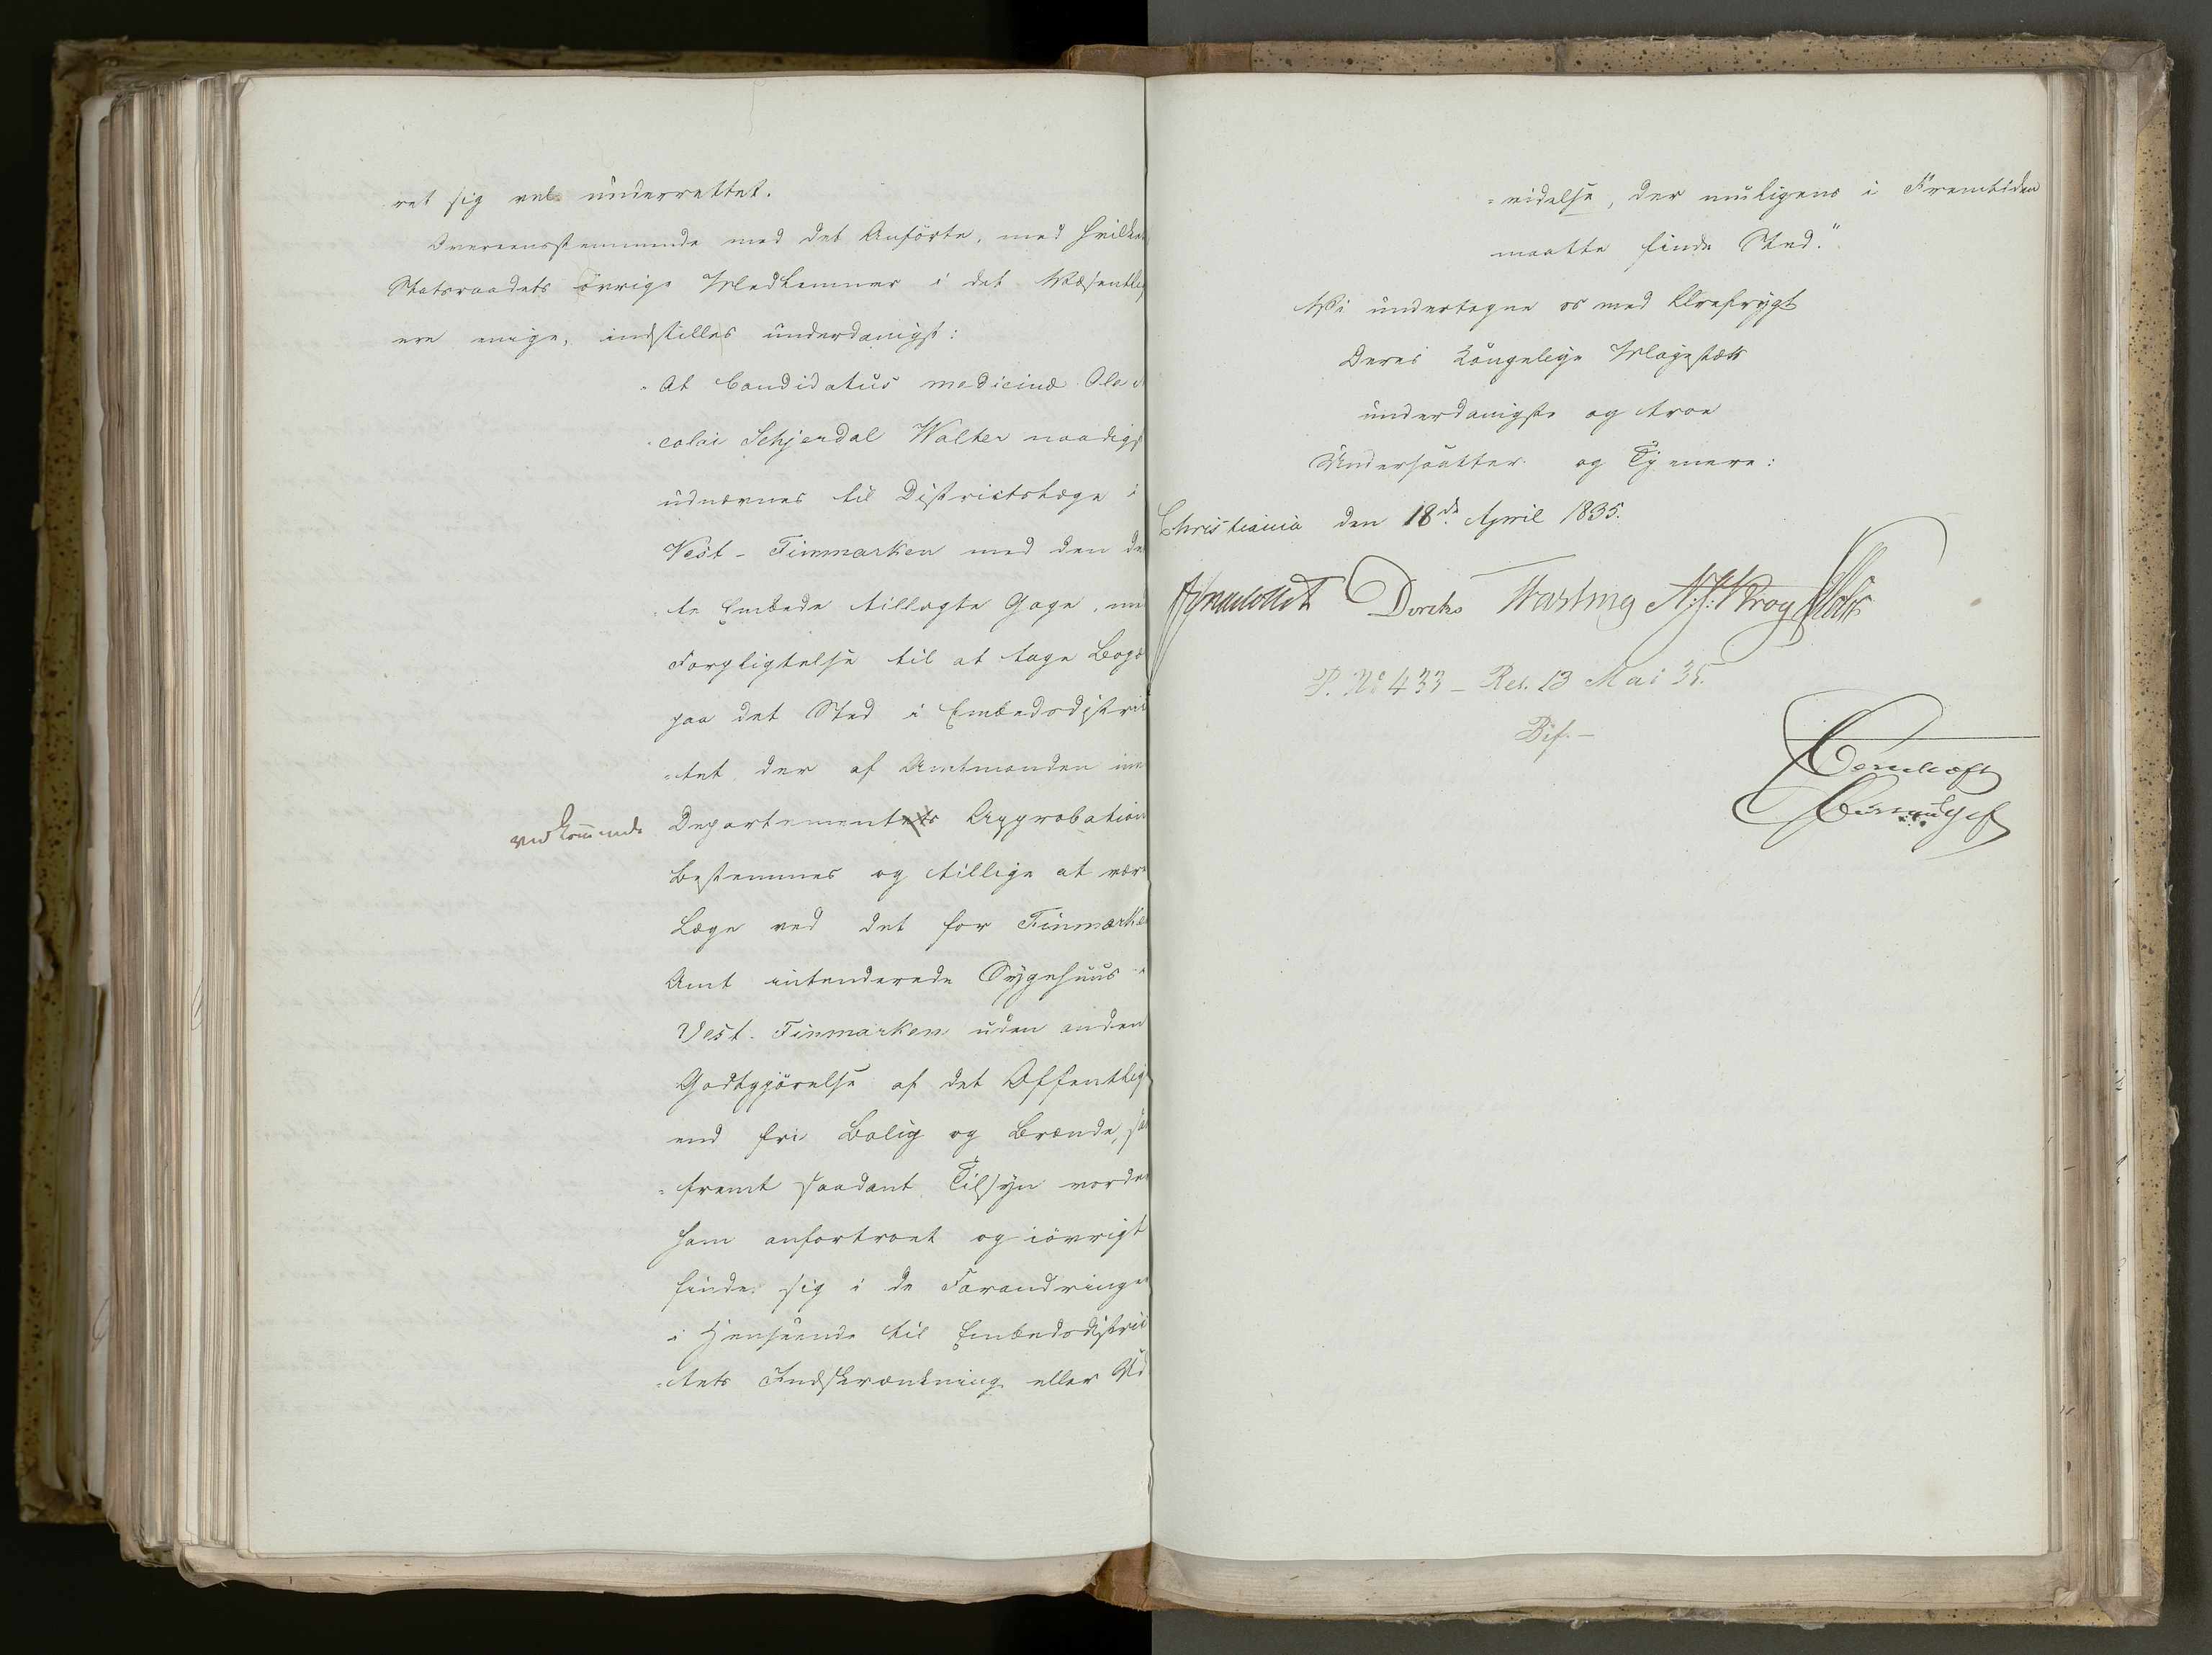 ret sig vel underrettet.
Overeensstemmende med det Anförte, med hvilket
Statsraadets övrige Medlemmer i det Væsentlig
ere enige, indstilles underdanigst:
"At Candidatus medicinæ Ole
colai Schjerdal Walter naadigst
udnævnes til Districtslæge i
Vest-Finmarken med den de
te Embede tillagte Gage, me
Forpligtelse til at tage Bopæ
paa det Sted i Embedsdistric
=tet, der af Amtmanden
vedkommende Departementets Approbation
bestemmes og tillige at være
Læge ved det for Finmarke
Amt intenderede Sygehuus
Vest-Finmarken uden anden
Godtgjörelse af det Offentlige
end fri Bolig og Brænde, saa
=fremt saadant Tilsyn vorder
ham anfortroet og iövrigt
finde sig i de Forandringer
i Henseende til Embedsdistric
=tets Indskrænkning eller Ud
=videlse, der muligens i Fremtiden
maatte finde Sted."
Vi undertegne os med Ærefrygt
Deres Kongelige Majestæts
underdanigste og troe
Undersaatter og Tjenere:
Christiania den 18de April 1835.
Collett Diriks Fasting N. J. Krog Holst
P. No 433 - Res. 13 Mai 35.
Bif. -